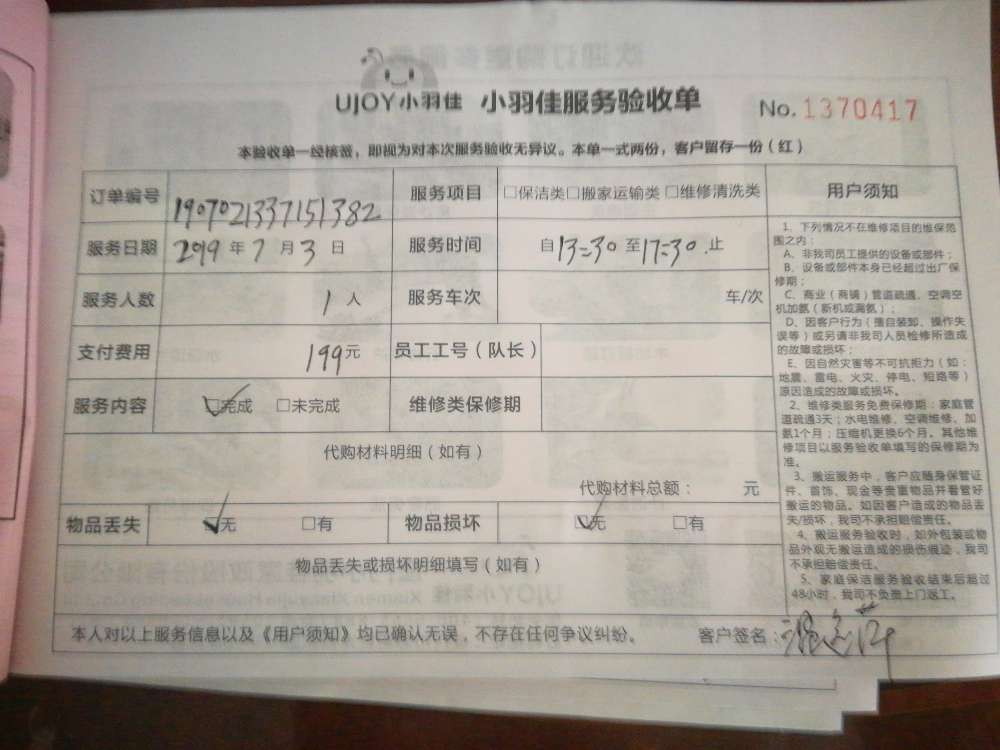 UJOY小羽佳 小羽佳服务验收单 No. 1370417
本验收单一经核签，即视为对本次服务验收无异议。本单一式两份，客户留存一份（红）
订单编号 1907021337151382 服务项目 □保洁类□搬家运输类□维修清洗类
服务日期 2019年7月3日 服务时间 自13:30至17:30止
服务人数 1人 服务车次 车/次
支付费用 199元 员工工号（队长）
服务内容 ☑完成 □未完成 维修类保修期
代购材料明细（如有）
代购材料总额： 元
物品丢失 ☑无 □有 物品损坏 ☑无 □有
物品丢失或损坏明细填写（如有）
本人对以上服务信息以及《用户须知》均已确认无误，不存在任何争议纠纷。 客户签名：
用户须知
1、下列情况不在维修项目的维保范
围之内：
A、非我司员工提供的设备或部件；
B、设备或部件本身已经超过出厂保
修期；
C、商业（商铺）管道疏通、空调空
机加氨（新机或漏氨）；
D、因客户行为（擅自装卸、操作失
误等）或另请非我司人员检修所造成
的故障或损坏；
E、因自然灾害等不可抗拒力（如：
地震、雷电、火灾、停电、短路等）
原因造成的故障或损坏。
2、维修类服务免费保修期：家庭管
道疏通3天；水电维修、空调维修、加
氨1个月；压缩机更换6个月。其他维
修项目以服务验收单填写的保修期为
准。
3、搬运服务中，客户应随身保管证
件、首饰、现金等贵重物品并看管好
搬运的物品。如因客户造成的物品丢
失/损坏，我司不承担赔偿责任。
4、搬运服务验收时，如外包装或物
品外观无搬运造成的损伤痕迹，我司
不承担赔偿责任。
5、家庭保洁服务验收结束后超过
48小时，我司不负责上门返工。